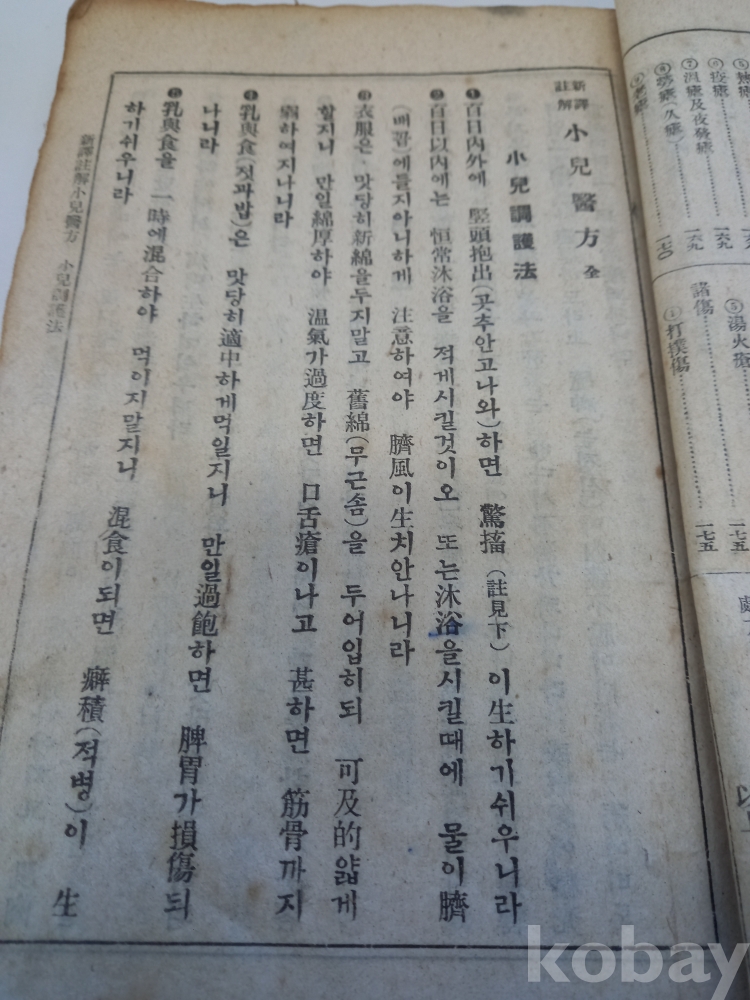 新譯註解 小兒醫方 全
小兒調護法
❶百日內外에 竪頭抱出(곳추안고나와)하면 驚搐(註見下)이生하기쉬우니라
❷百日以內에는 恒常沐浴을 적게시킬것이오 또는沐浴을시킬때에 물이臍
(배꼽)에들지아니하게 注意하여야 臍風이生치안나니라
❸衣服은 맛당히新綿을두지말고 舊綿(무근솜)을 두어입히되 可及的얇게
할지니 만일綿厚하야 溫氣가過度하면 口舌瘡이나고 甚하면 筋骨까지
弱하여지나니라
❹乳與食(젓과밥)은 맛당히適中하게먹일지니 만일過飽하면 脾胃가損傷되
나니라
❺乳與食을 一時에混合하야 먹이지말지니 混食이되면 癖積(적병)이 生
하기쉬우니라
新譯註解小兒醫方 小兒調護法
⑥疫瘧 一六九
⑦溫瘧及夜發瘧 一六九
⑧勞瘧(久瘧)
一七〇
⑤湯火瘡 一七五
諸傷
①打撲傷 一七五
kobay